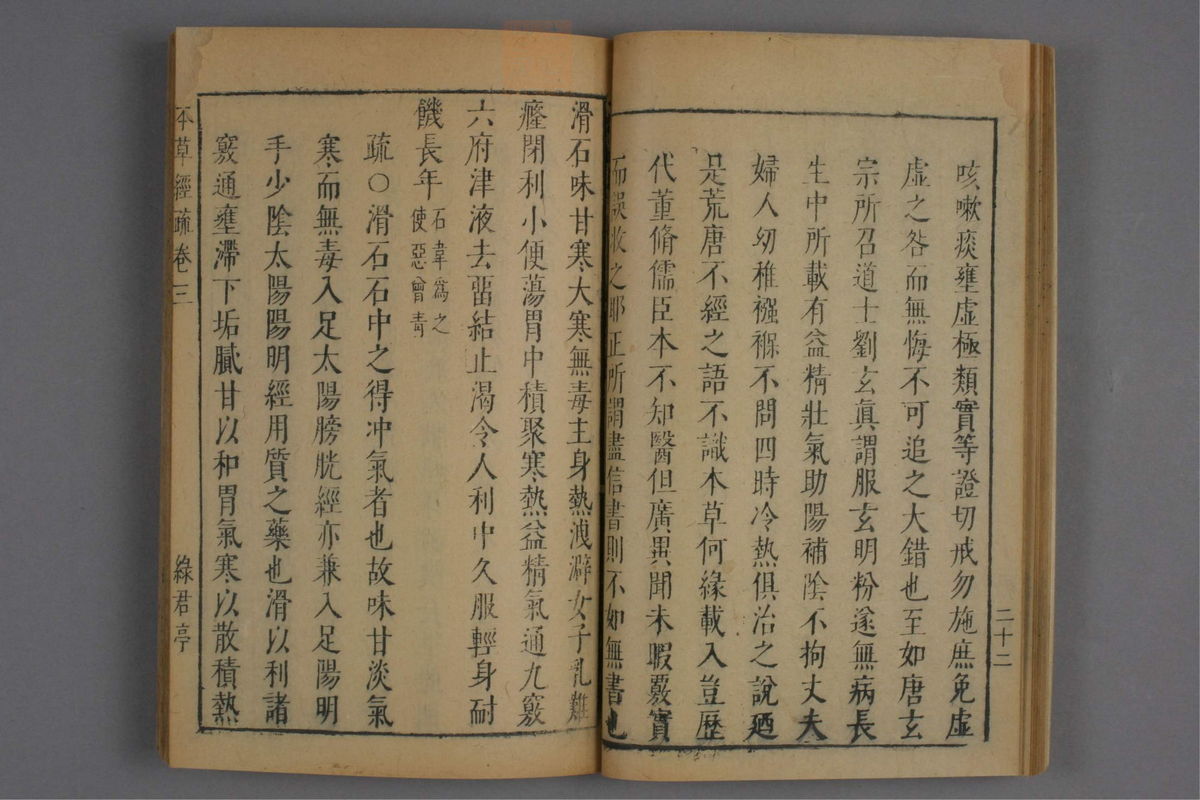 咳嗽痰壅虛極類實等證切戒勿施庶免虛
虛之咎而無悔不可追之大錯也至如唐玄
宗所召道士劉玄眞謂服玄明粉遂無病長
生中所載有益精壯氣助陽補陰不拘丈夫
婦人幼稚襁褓不問四時冷熱俱治之說廼
是荒唐不經之語不識本草何緣載入豈歷
代董脩儒臣本不知醫但廣異聞未暇覈實
而誤收之耶正所謂盡信書則不如無書也
二十二
滑石味甘寒大寒無毒主身熱洩澼女子乳難
癃閉利小便蕩胃中積聚寒熱益精氣通九竅
六府津液去畱結止渴令人利中久服輕身耐
饑長年
石韋爲之
使惡曾青
疏○滑石石中之得冲氣者也故味甘淡氣
寒而無毒入足太陽膀胱經亦兼入足陽明
手少陰太陽陽明經用質之藥也滑以利諸
竅通壅滯下垢膩甘以和胃氣寒以散積熱
本草經疏卷三
綠君亭